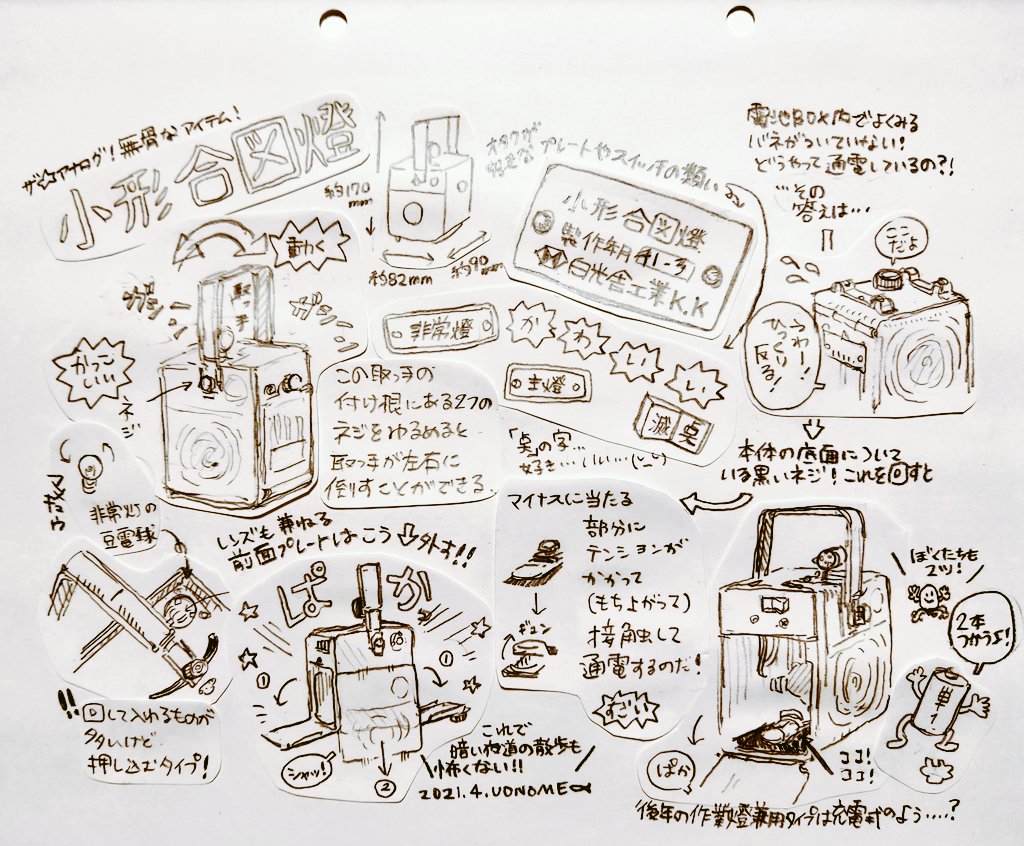 ザ☆アナログ!無骨なアイテム!
小形合図燈
約170
mm
約82mm
約90mm
オタクが
好きな
プレートやスイッチの類い
小形合図燈
製作年月
白光舎工業K.K
非常燈
かわいい
主燈
滅
「臭」の字…
好き…いい…
動く
取っ手
ガション
ガション
かっこいい
ネジ
この取っ手の
付け根にある2つの
ネジをゆるめると
取っ手が左右に
倒すことができる
電池BOX内でよくみる
バネがついていない!
どうやって通電しているの?!
…その
答えは…
ここだよ
うわー!
ひっくり
反る!
本体の底面について
いる黒いネジ!これを回すと
マイナスに当たる
部分に
テンションが
かかって
(もち上がって)
接触して
通電するのだ!
ギュン
ぼくたちも
2ツ!
2本
つかうよ!
単1
ココ!
ココ!
ぱか
後年の作業燈兼用タイプは充電式のよう……?
非常灯の
豆電球
!!回して入れるものが
多いけど
押し込むタイプ!
レンズも兼ねる
前面プレートはこう外す!!
ぱか
①
①
シャッ!
②
これで
暗い夜道の散歩も
怖くない!!
2021.4.UONOME